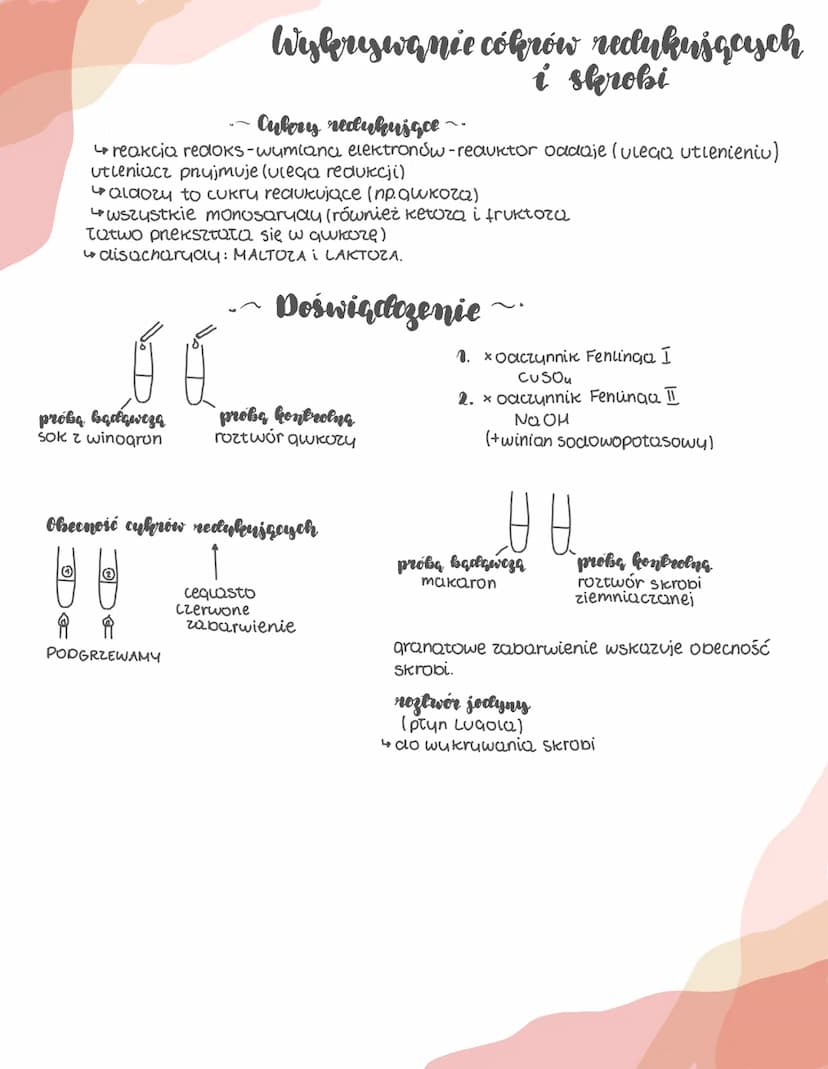 Wykrywanie cókrów redukujących
i skrobi
~ Cukry redukujące ~
↳ reakcja redoks - wymiana elektronów - reduktor oddaje (ulega utlenieniu)
utleniacz przyjmuje (ulega redukcji)
↳ aldozy to cukry redukujące (np. glukoza)
↳ wszystkie monosarydy (również ketoza i fruktoza
łatwo przekształa się w glukozę)
↳ disacharydy: MALTOZA i LAKTOZA.
~ Doświadczenie ~
1. x odczynnik Fehlinga I
CuSO4
2. x odczynnik Fehlinga II
NaOH
(+winian sodowopotasowy)
próba badawcza
sok z winogron
próba kontrolna
roztwór glukozy
Obecność cukrów redukujących
1 2
ceglasto
czerwone
zabarwienie
PODGRZEWAMY
próba badawcza
makaron
próba kontrolna
roztwór skrobi
ziemniaczanej
granatowe zabarwienie wskazuje obecność
skrobi.
roztwór jodyny
(płyn Lugola)
↳ do wykrywania skrobi